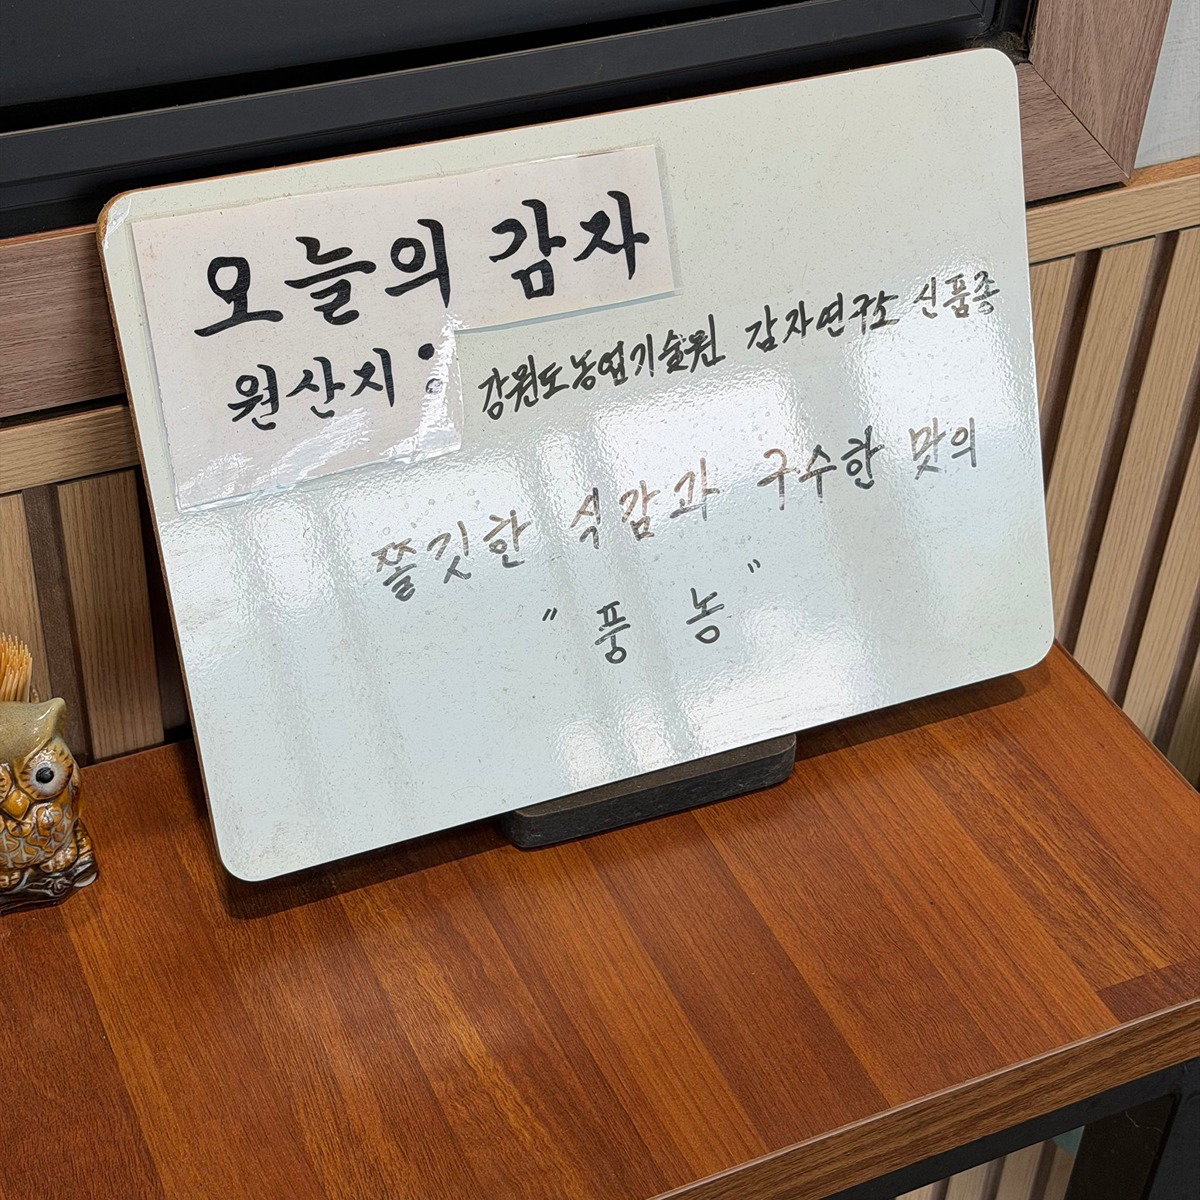 오늘의 감자
원산지 : 강원도농업기술원 감자연구소 신품종
쫄깃한 식감과 구수한 맛의
" 풍 농 "